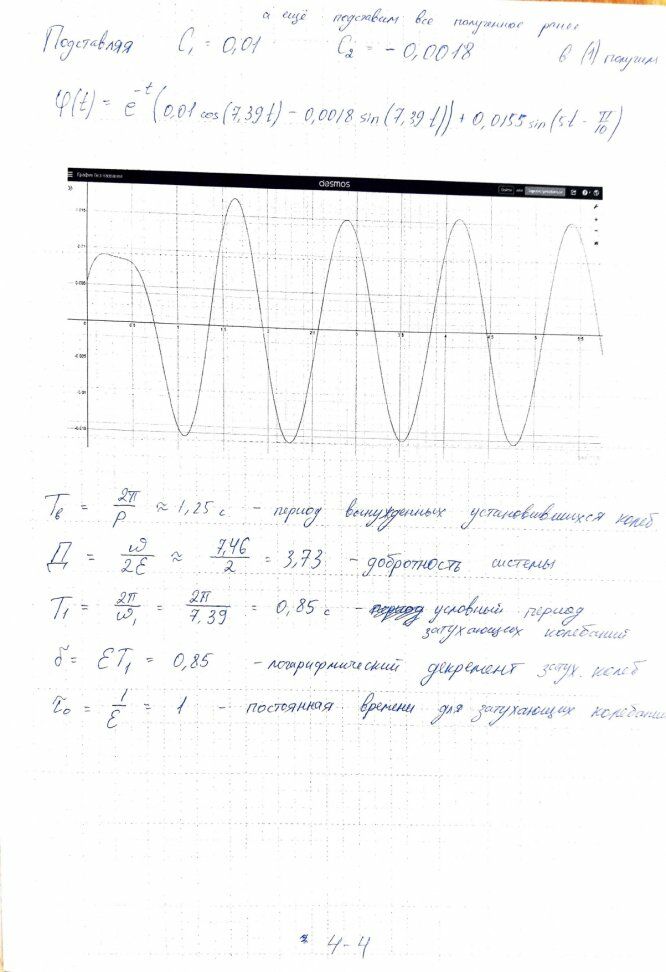 а ещё подставим все полученное ранее
Подставляя C₁ = 0,01 C₂ = - 0,0018 в (1) получим
φ(t) = e^-t (0,01 cos(7,39t) - 0,0018 sin(7,39t)) + 0,0155 sin(5t - π/10)
График без названия desmos
Tв = 2π/p ≈ 1,25 с - период вынужденных установившихся колеб
Д = ω/2ε ≈ 7,46/2 = 3,73 - добротность системы
T₁ = 2π/ω₁ = 2π/7,39 = 0,85 с - условный период
затухающих колебаний
δ = εT₁ = 0,85 - логарифмический декремент затух. колеб
τ₀ = 1/ε = 1 - постоянная времени для затухающих колебани
4-4